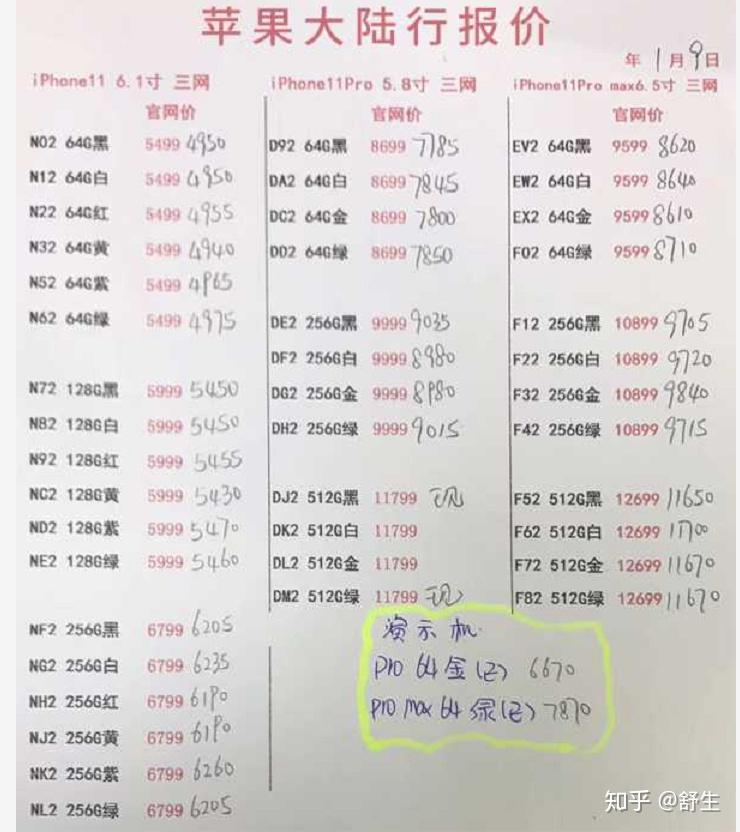 苹果大陆行报价
年 1月9日
iPhone11 6.1寸 三网
官网价
N02 64G黑 5499 4950
N12 64G白 5499 4950
N22 64G红 5499 4955
N32 64G黄 5499 4940
N52 64G紫 5499 4965
N62 64G绿 5499 4975
N72 128G黑 5999 5450
N82 128G白 5999 5450
N92 128G红 5999 5455
NC2 128G黄 5999 5430
ND2 128G紫 5999 5470
NE2 128G绿 5999 5460
NF2 256G黑 6799 6205
NG2 256G白 6799 6235
NH2 256G红 6799 6190
NJ2 256G黄 6799 6190
NK2 256G紫 6799 6260
NL2 256G绿 6799 6205
iPhone11Pro 5.8寸 三网
官网价
D92 64G黑 8699 7785
DA2 64G白 8699 7845
DC2 64G金 8699 7800
DD2 64G绿 8699 7850
DE2 256G黑 9999 9035
DF2 256G白 9999 8980
DG2 256G金 9999 8980
DH2 256G绿 9999 9015
DJ2 512G黑 11799 现
DK2 512G白 11799
DL2 512G金 11799
DM2 512G绿 11799 现
iPhone11Pro max6.5寸 三网
官网价
EV2 64G黑 9599 8620
EW2 64G白 9599 8640
EX2 64G金 9599 8610
F02 64G绿 9599 8710
F12 256G黑 10899 9705
F22 256G白 10899 9720
F32 256G金 10899 9840
F42 256G绿 10899 9715
F52 512G黑 12699 11650
F62 512G白 12699 11700
F72 512G金 12699 11670
F82 512G绿 12699 11670
演示机
Pro 64金(Z) 6670
Pro max 64绿(Z) 7870
知乎 @舒生